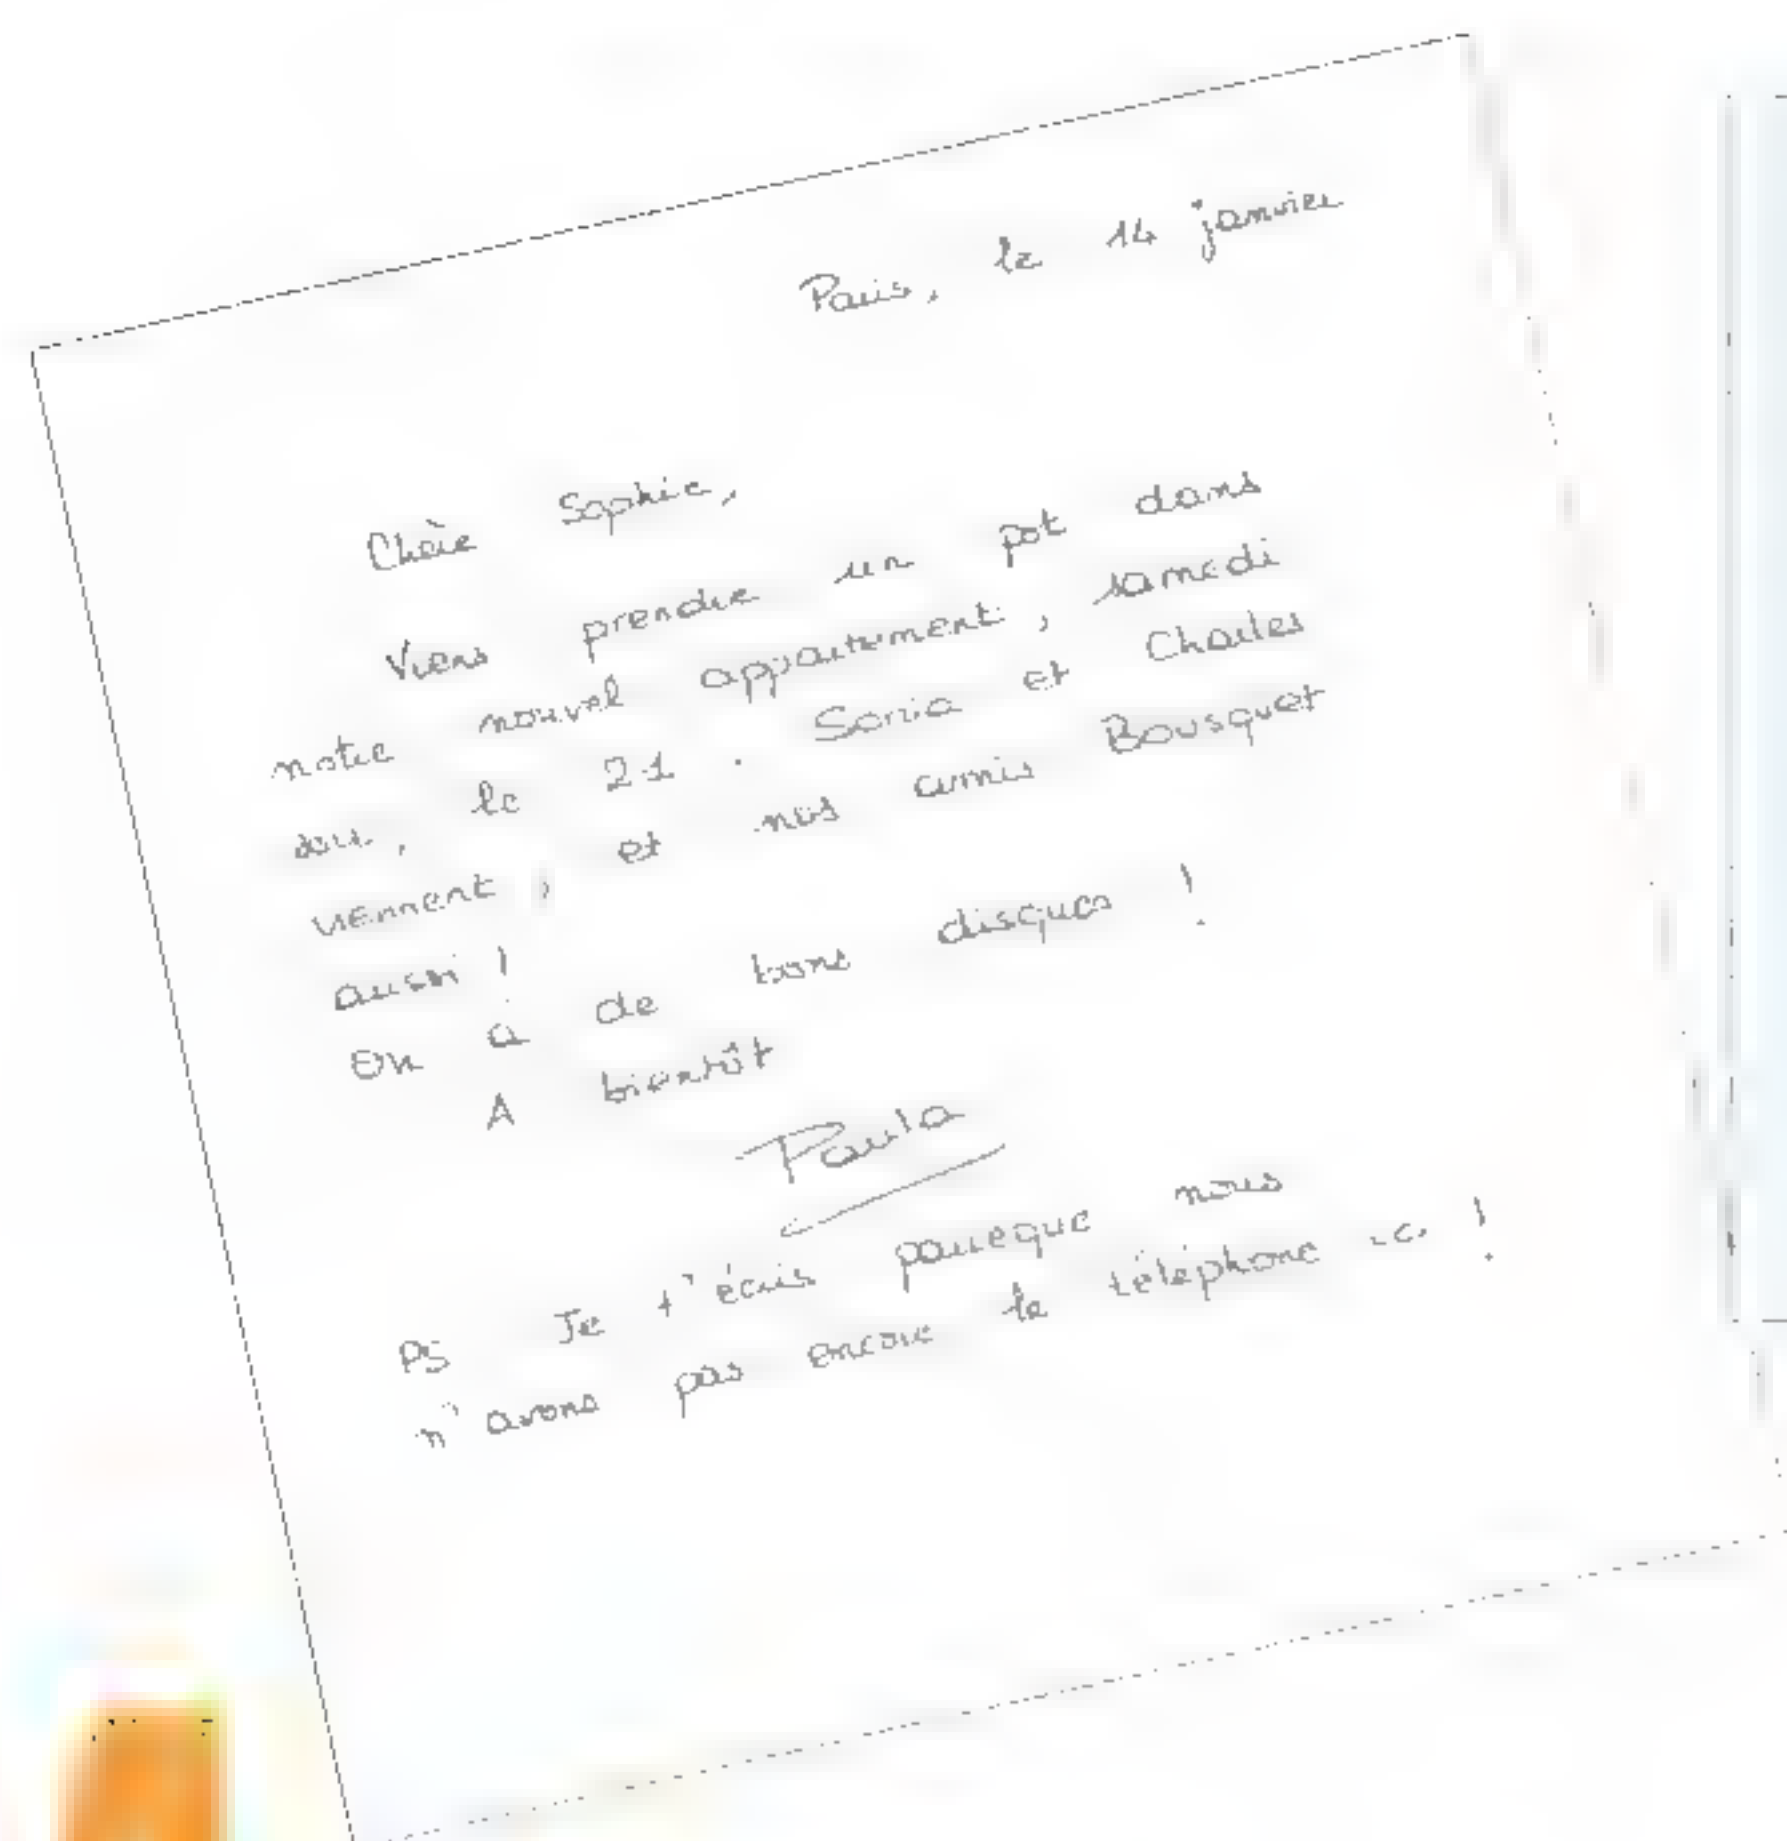 Paris, le 14 janvier
Chère Sophie,
Viens prendre un pot dans
notre nouvel appartement, samedi
soir, le 21. Sonia et Charles
viennent, et nos amis Bousquet
aussi !
On a de bons disques !
A bientôt
Paula
PS Je t'écris parceque nous
n'avons pas encore le téléphone ici !